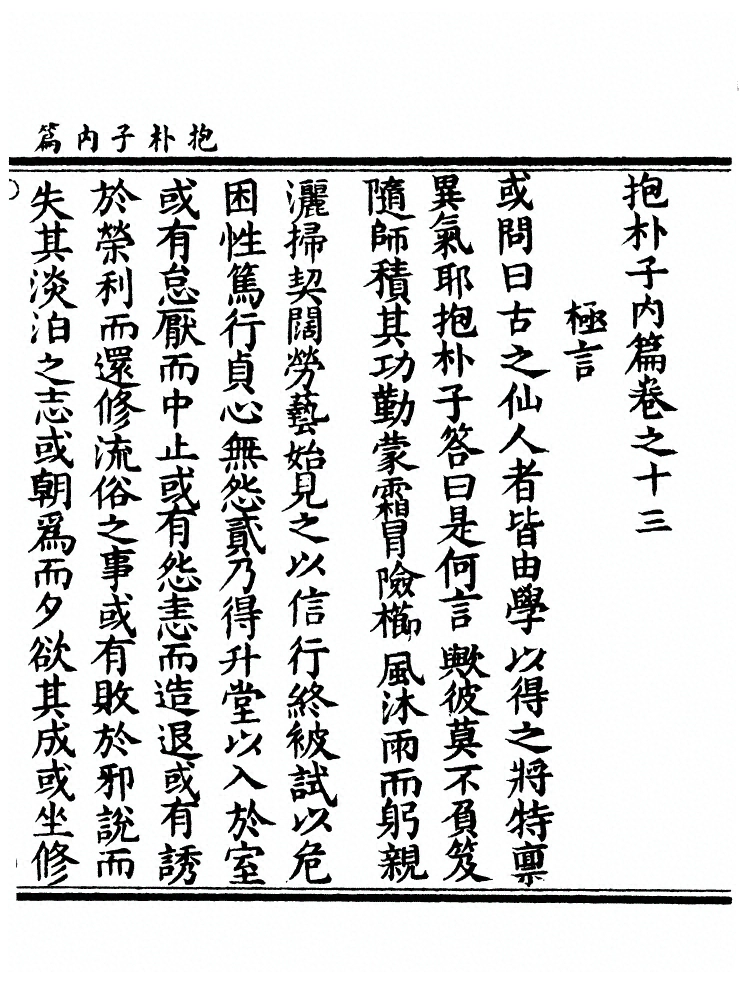 抱朴子內篇
抱朴子內篇卷之十三
極言
或問曰古之仙人者皆由學以得之將特禀
異氣耶抱朴子答曰是何言歟彼莫不負笈
隨師積其功勤蒙霜冒險櫛風沐雨而躬親
灑掃契闊勞藝始見之以信行終被試以危
困性篤行貞心無怨貳乃得升堂以入於室
或有怠厭而中止或有怨恚而造退或有誘
於榮利而還修流俗之事或有敗於邪說而
失其淡泊之志或朝爲而夕欲其成或坐修